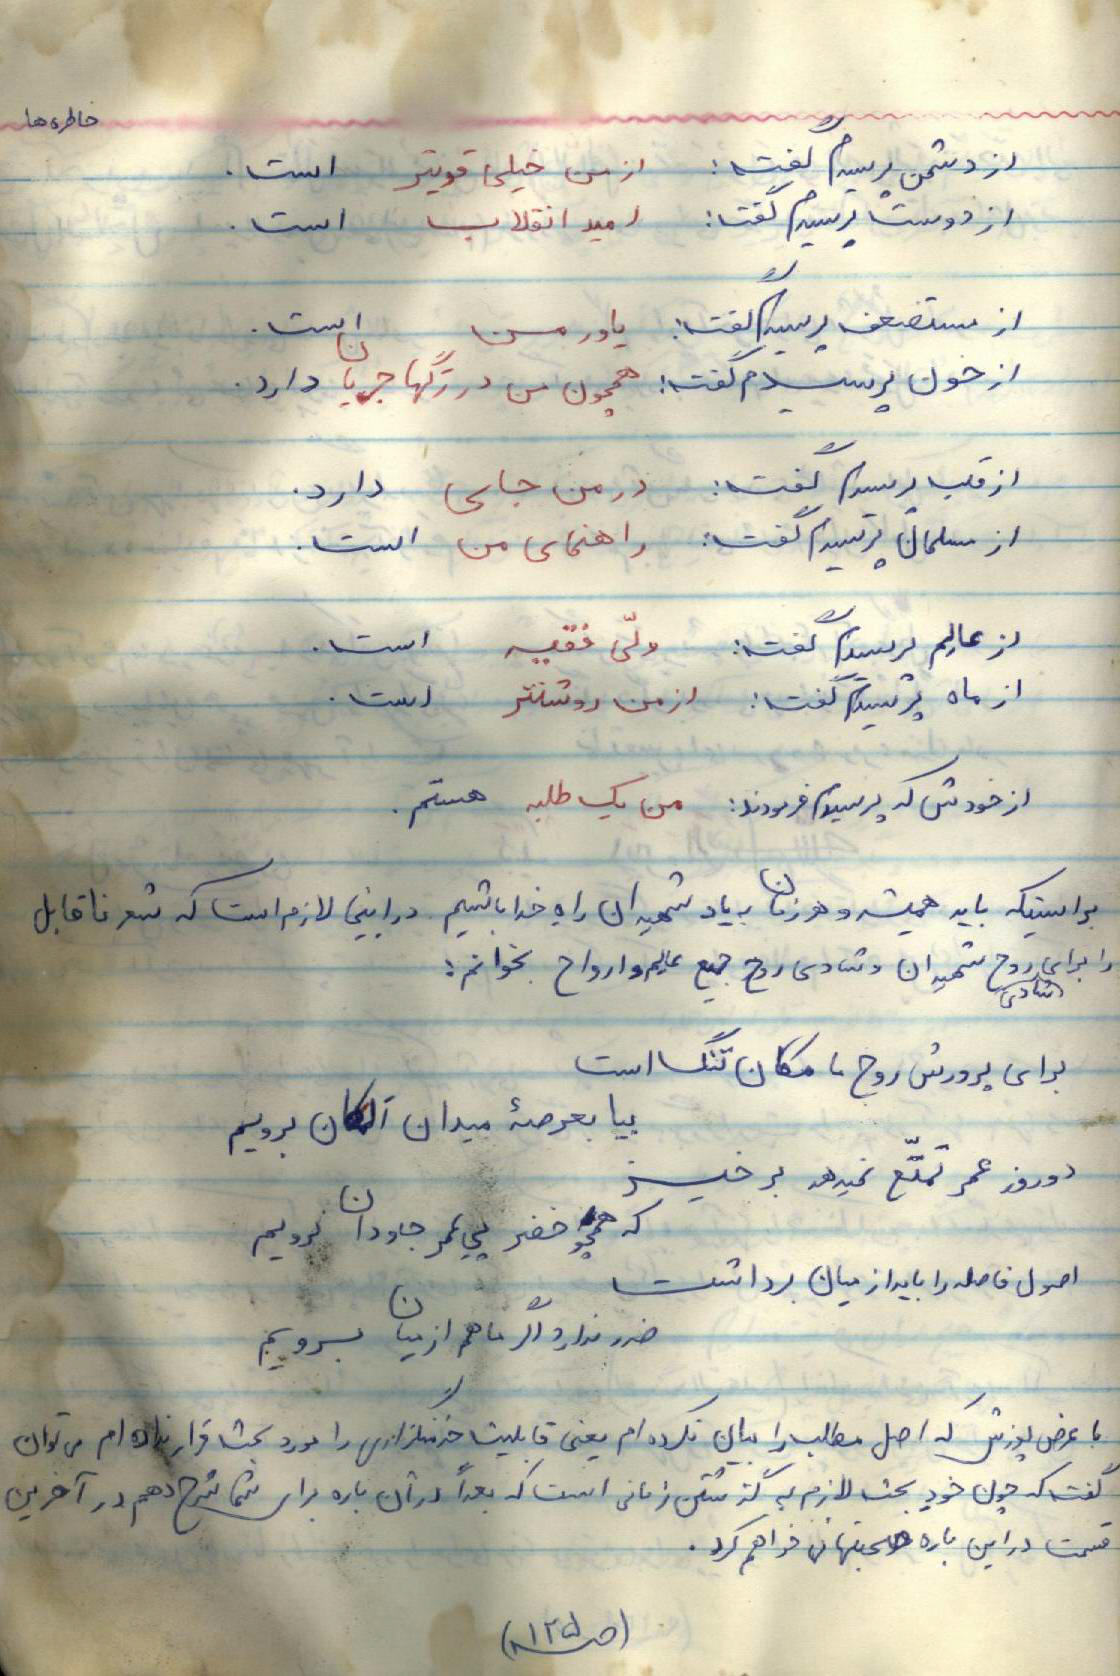 خاطره ها
از دشمن پرسیدم گفت: از من خیلی قویتر است.
از دوست پرسیدم گفت: امید انقلاب است.
از مستضعف پرسیدم گفت: یاور من است.
از خون پرسیدم گفت: همچون من در رگها جریان دارد.
از قلب پرسیدم گفت: در من جای دارد.
از مسلمان پرسیدم گفت: راهنمای من است.
از عالم پرسیدم گفت: ولّی فقیه است.
از ماه پرسیدم گفت: از من روشنتر است.
از خودش که پرسیدم فرمودند: من یک طلبه هستم.
براستیکه باید همیشه و هر زمان به یاد شهیدان راه خدا باشیم. در اینجا لازم است که شعر ناقابل
را برای شادی روح شهیدان و شادی روح جمیع عالم و ارواح بخوانم:
برای پرورش روح ما مکان تنگ است
بیا بعرصهٔ میدان برویم
دو روز عمر تمتّع نمیدهد برخیز
که همچو خضر پی عمر جاودان برویم
اصول فاصله را باید از میان برداشت
ضرر ندارد اگر ما هم از میان برویم
با عرض پوزش که اصل مطالب را بیان نکرده ام یعنی قابلیت خدمتگزاری را مورد بحث قرار نداده ام می توان
گفت که چون خود بحث لازم به گذشتن زمانی است که بعداً در آن باره برای شما شرح دهم در آخرین
قسمت در این باره خواهم کرد.
(صـ ۱۲۵)